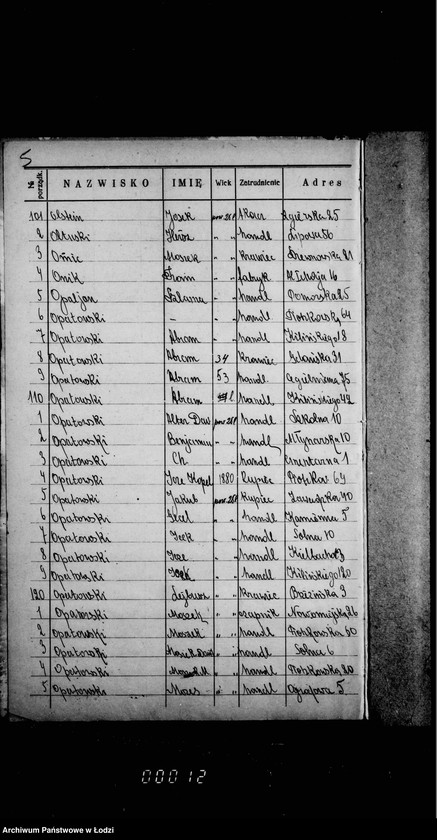 5
№ porządk. NAZWISKO IMIĘ Wiek Zatrudnienie Adres
101 Olstein Josek pow. 28 l. Tkacz Zgierska 25
2 Hersz " " handl Lipowa 56
3 Ośnic Moszek " " krawiec Drewnowska 21
4 Onik Froim " " fabryk M Il 16
5 Opaljon Salama " " handl Pomorska 25
6 Opatowski – " " handl Piotrkowska 64
7 Opatowski Abram " " handl Kilińskiego 18
8 Opatowski Abram 34 Krawiec Gdańska 31
9 Opatowski Abram 53 handl. Cegielniana 75
110 Opatowski Abram handl Kilińskiego 42
1 Opatowski Alter Daw pow. 28 l. handl Szkolna 10
2 Opatowski Benjamin " " handl Młynarska 10
3 Opatowski Ch. " " handl 1
4 Opatowski Icze Kopel 1880 Kupiec Piotrkow 64
5 Opatowski Jakub pow. 28 l. Kupiec Zawadzka 40
6 Opatowski Icel " " handl Kamienna 5
7 Opatowski Icek " " handl Solna 10
8 Opatowski Icze " " handl Kielbacha 3
9 Opatowski Icek " " handl Kilińskiego 120
120 Opatowski Lejbuś " " Krawiec Brzezińska 3
1 Opatowski Moszek " " czapnik Nowomiejska 26
2 Opatowski Moszek " " handl Piotrkowska 80
3 Opatowski Moszek Dawid " " handl Solna 6
4 Opatowski Moszek M " " handl Piotrkowska 20
5 Opatowski Mozes " " handl Ogrodowa 5
00012
Archiwum Państwowe w Łodzi